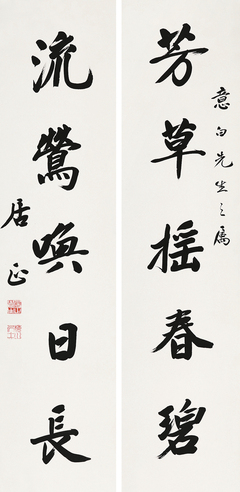 意白先生之屬
芳草摇春碧
流鶯喚日長
居正